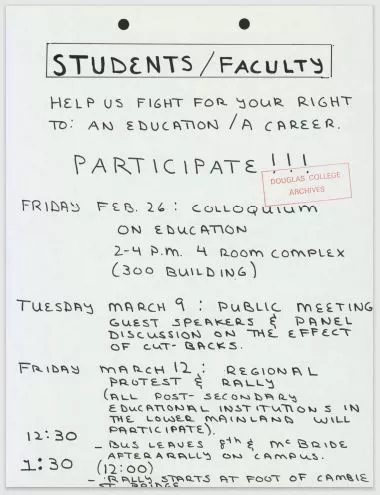 STUDENTS/FACULTY
HELP US FIGHT FOR YOUR RIGHT
TO: AN EDUCATION/A CAREER.
PARTICIPATE!!!
DOUGLAS COLLEGE
ARCHIVES
FRIDAY FEB. 26: COLLOQUIUM
ON EDUCATION
2-4 P.M. 4 ROOM COMPLEX
(300 BUILDING)
TUESDAY MARCH 9: PUBLIC MEETING
GUEST SPEAKERS & PANEL
DISCUSSION ON THE EFFECT
OF CUT-BACKS.
FRIDAY MARCH 12: REGIONAL
PROTEST & RALLY
(ALL POST-SECONDARY
EDUCATIONAL INSTITUTIONS IN
THE LOWER MAINLAND WILL
PARTICIPATE).
12:30 - BUS LEAVES 8th & McBRIDE
AFTER A RALLY ON CAMPUS.
1:30 (12:00)
- RALLY STARTS AT FOOT OF CAMBIE
ST. BRIDGE